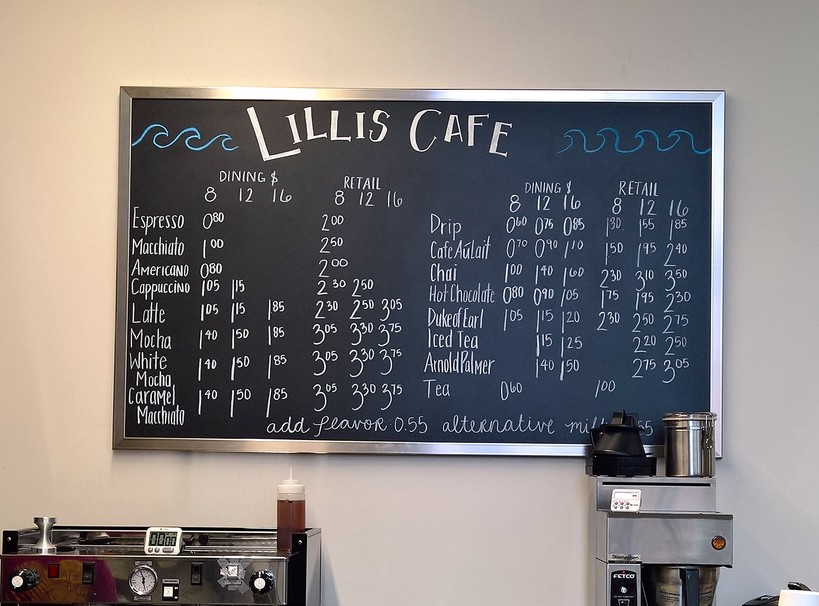 LILLIS CAFE
DINING $ RETAIL
8 12 16 8 12 16
Espresso 0⁸⁰ 2⁰⁰
Macchiato 1⁰⁰ 2⁵⁰
Americano 0⁸⁰ 2⁰⁰
Cappuccino 1⁰⁵ 1¹⁵ 2³⁰ 2⁵⁰
Latte 1⁰⁵ 1¹⁵ 1⁸⁵ 2³⁰ 2⁵⁰ 3⁰⁵
Mocha 1⁴⁰ 1⁵⁰ 1⁸⁵ 3⁰⁵ 3³⁰ 3⁷⁵
White 1⁴⁰ 1⁵⁰ 1⁸⁵ 3⁰⁵ 3³⁰ 3⁷⁵
Mocha
Caramel 1⁴⁰ 1⁵⁰ 1⁸⁵ 3⁰⁵ 3³⁰ 3⁷⁵
Macchiato
DINING $ RETAIL
8 12 16 8 12 16
Drip 0⁶⁰ 0⁷⁵ 0⁸⁵ 1³⁰ 1⁵⁵ 1⁸⁵
Cafe Au Lait 0⁷⁰ 0⁹⁰ 1¹⁰ 1⁵⁰ 1⁹⁵ 2⁴⁰
Chai 1⁰⁰ 1⁴⁰ 1⁶⁰ 2³⁰ 3¹⁰ 3⁵⁰
Hot Chocolate 0⁸⁰ 0⁹⁰ 1⁰⁵ 1⁷⁵ 1⁹⁵ 2³⁰
Duke of Earl 1⁰⁵ 1¹⁵ 1²⁰ 2³⁰ 2⁵⁰ 2⁷⁵
Iced Tea 1¹⁵ 1²⁵ 2²⁰ 2⁵⁰
Arnold Palmer 1⁴⁰ 1⁵⁰ 2⁷⁵ 3⁰⁵
Tea 0⁶⁰ 1⁰⁰
add flavor 0.55 alternative mil 55
FETCO